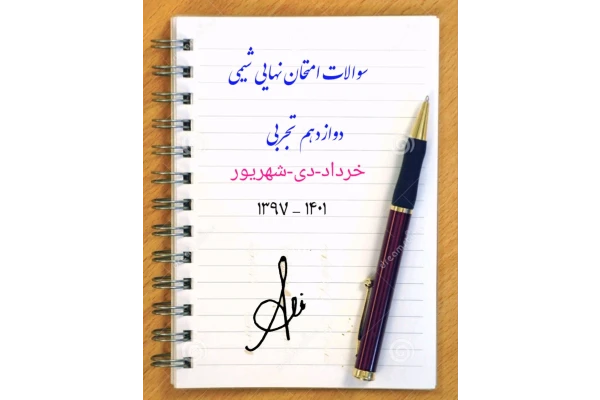 سوالات امتحان نهایی شیمی
دوازدهم تجربی
خرداد-دی-شهریور
۱۳۹۷ – ۱۴۰۱